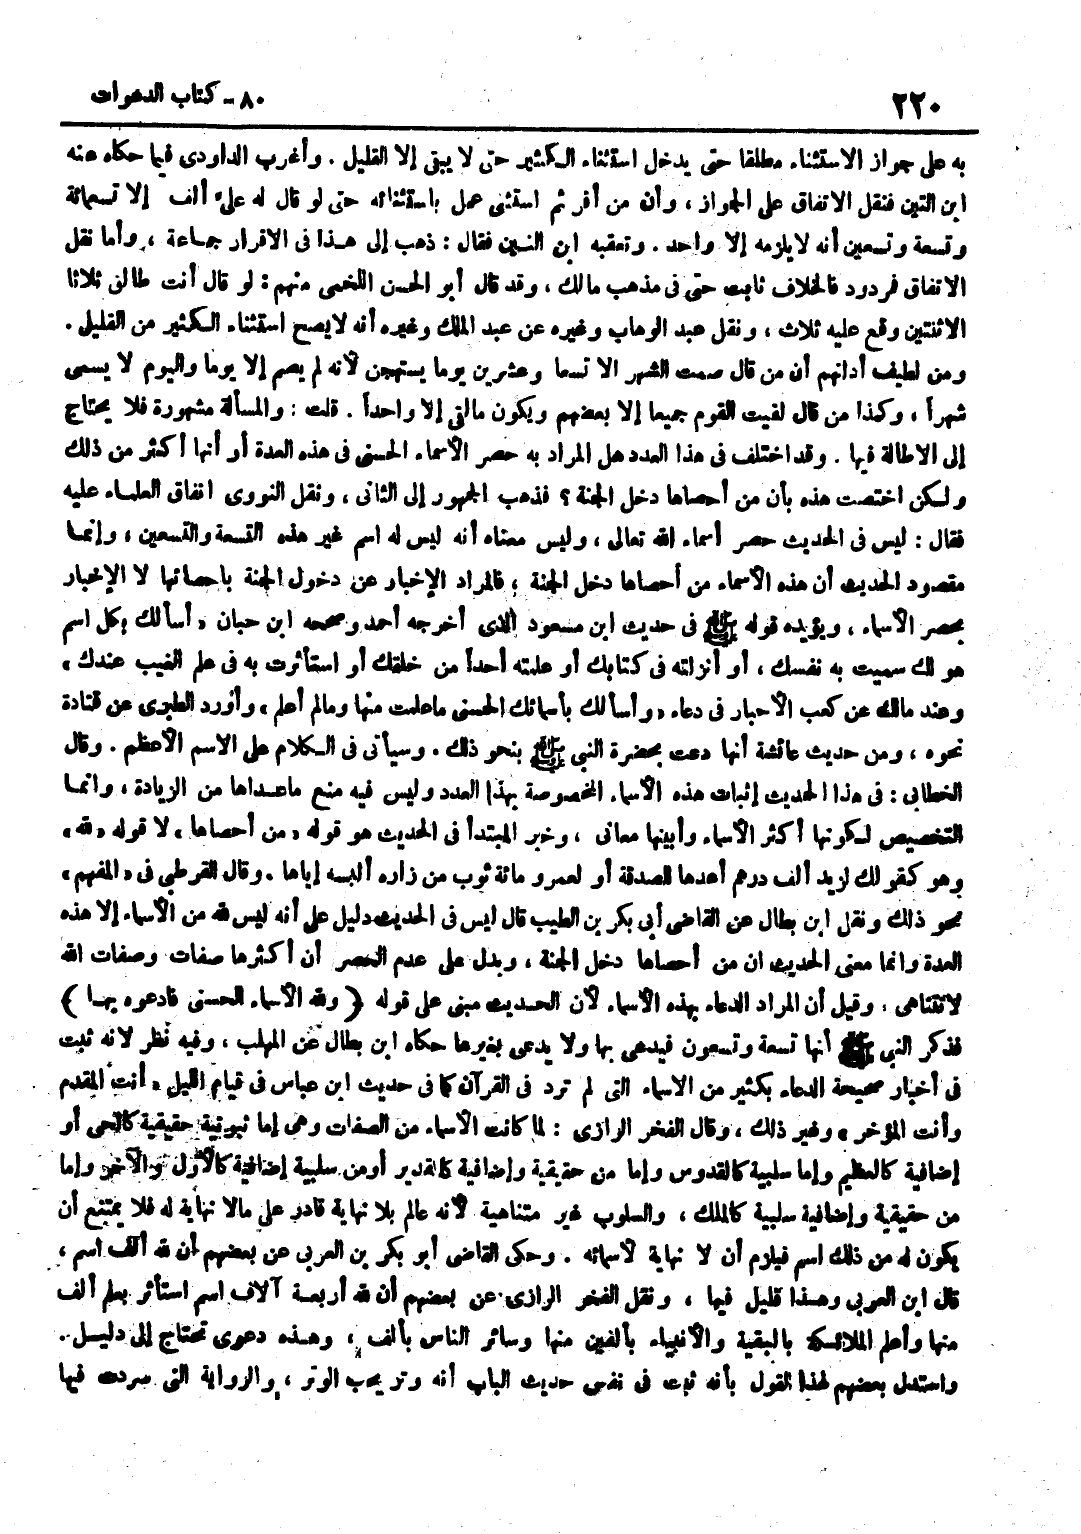 ٢٢٠
٨٠ - كتاب الدعوات
به على جواز الاستثناء مطلقا حتى يدخل استثناء الكثير حتى لا يبقى إلا القليل . وأغرب الداودى فيما حكاه عنه
ابن التين فنقل الاتفاق على الجواز ، وأن من أقر ثم استثنى عمل باستثنائه حتى لو قال له علىّ ألف إلا تسعمائة
وتسعة وتسعين أنه لا يلزمه إلا واحد . وتعقبه ابن التين فقال : ذهب إلى هذا فى الاقرار جماعة ، وأما نقل
الاتفاق فمردود فالخلاف ثابت حتى فى مذهب مالك ، وقد قال أبو الحسن اللخمى منهم : لو قال أنت طالق ثلاثا
الا ثنتين وقع عليه ثلاث ، ونقل عبد الوهاب وغيره عن عبد الملك وغيره أنه لا يصح استثناء الكثير من القليل .
ومن لطيف أدلتهم أن من قال صمت الشهر الا تسعا وعشرين يوما يستهجن لأنه لم يصم إلا يوما واليوم لا يسمى
شهراً ، وكذا من قال لقيت القوم جميعا إلا بعضهم ويكون ما لقى إلا واحداً . قلت : والمسألة مشهورة فلا يحتاج
إلى الاطالة فيها . وقد اختلف فى هذا العدد هل المراد به حصر الأسماء الحسنى فى هذه العدة أو أنها أكثر من ذلك
ولكن اختصت هذه بأن من أحصاها دخل الجنة ؟ فذهب الجمهور إلى الثانى ، ونقل النووى اتفاق العلماء عليه
فقال : ليس فى الحديث حصر أسماء الله تعالى ، وليس معناه أنه ليس له اسم غير هذه التسعة والتسعين ، وإنما
مقصود الحديث أن هذه الأسماء من أحصاها دخل الجنة ؛ فالمراد الإخبار عن دخول الجنة باحصائها لا الإخبار
بحصر الأسماء ، ويؤيده قوله ﷺ فى حديث ابن مسعود الذى أخرجه أحمد وصححه ابن حبان « أسألك بكل اسم
هو لك سميت به نفسك ، أو أنزلته فى كتابك أو علمته أحداً من خلقك أو استأثرت به فى علم الغيب عندك »
وعند مالك عن كعب الأحبار فى دعاء « وأسألك بأسمائك الحسنى ما علمت منها وما لم أعلم » وأورد الطبرى عن قتادة
نحوه ، ومن حديث عائشة أنها دعت بحضرة النبى ﷺ بنحو ذلك . وسيأتى فى الكلام على الاسم الأعظم . وقال
الخطابى : فى هذا الحديث إثبات هذه الأسماء المخصوصة بهذا العدد وليس فيه منع ما عداها من الزيادة ، وانما
التخصيص لكونها أكثر الأسماء وأبينها معانى ، وخبر المبتدأ فى الحديث هو قوله « من أحصاها » لا قوله « لله »
وهو كقولك لزيد ألف درهم أعدها للصدقة أو لعمرو مائة ثوب من زاره ألبسه إياها . وقال القرطبى فى « المفهم »
نحو ذلك ونقل ابن بطال عن القاضى أبى بكر بن الطيب قال ليس فى الحديث دليل على أنه ليس لله من الأسماء إلا هذه
العدة وانما معنى الحديث ان من أحصاها دخل الجنة ، ويدل على عدم الحصر أن أكثرها صفات وصفات الله
لا تتناهى ، وقيل أن المراد الدعاء بهذه الأسماء لأن الحديث مبنى على قوله ﴿ ولله الأسماء الحسنى فادعوه بها ﴾
فذكر النبى ﷺ أنها تسعة وتسعون فيدعى بها ولا يدعى بغيرها حكاه ابن بطال عن المهلب ، وفيه نظر لانه ثبت
فى أخبار صحيحة الدعاء بكثير من الاسماء التى لم ترد فى القرآن كما فى حديث ابن عباس فى قيام الليل « أنت المقدم
وأنت المؤخر » وغير ذلك ، وقال الفخر الرازى : لما كانت الأسماء من الصفات وهى إما ثبوتية حقيقية كالحى أو
إضافية كالعظيم وإما سلبية كالقدوس وإما من حقيقية وإضافية كالقدير أو من سلبية إضافية كالأول والآخر وإما
من حقيقية وإضافية سلبية كالملك ، والسلوب غير متناهية لأنه عالم بلا نهاية قادر على مالا نهاية له فلا يمتنع أن
يكون له من ذلك اسم فيلزم أن لا نهاية لأسمائه . وحكى القاضى أبو بكر بن العربى عن بعضهم أن لله ألف اسم ،
قال ابن العربى وهذا قليل فيها ، ونقل الفخر الرازى عن بعضهم أن لله أربعة آلاف اسم استأثر بعلم ألف
منها وأعلم الملائكة بالبقية والأنبياء بألفين منها وسائر الناس بألف ، وهذه دعوى تحتاج إلى دليل .
واستدل بعضهم لهذا القول بأنه ثبت فى نفس حديث الباب أنه وتر يحب الوتر ، والرواية التى سردت فيها